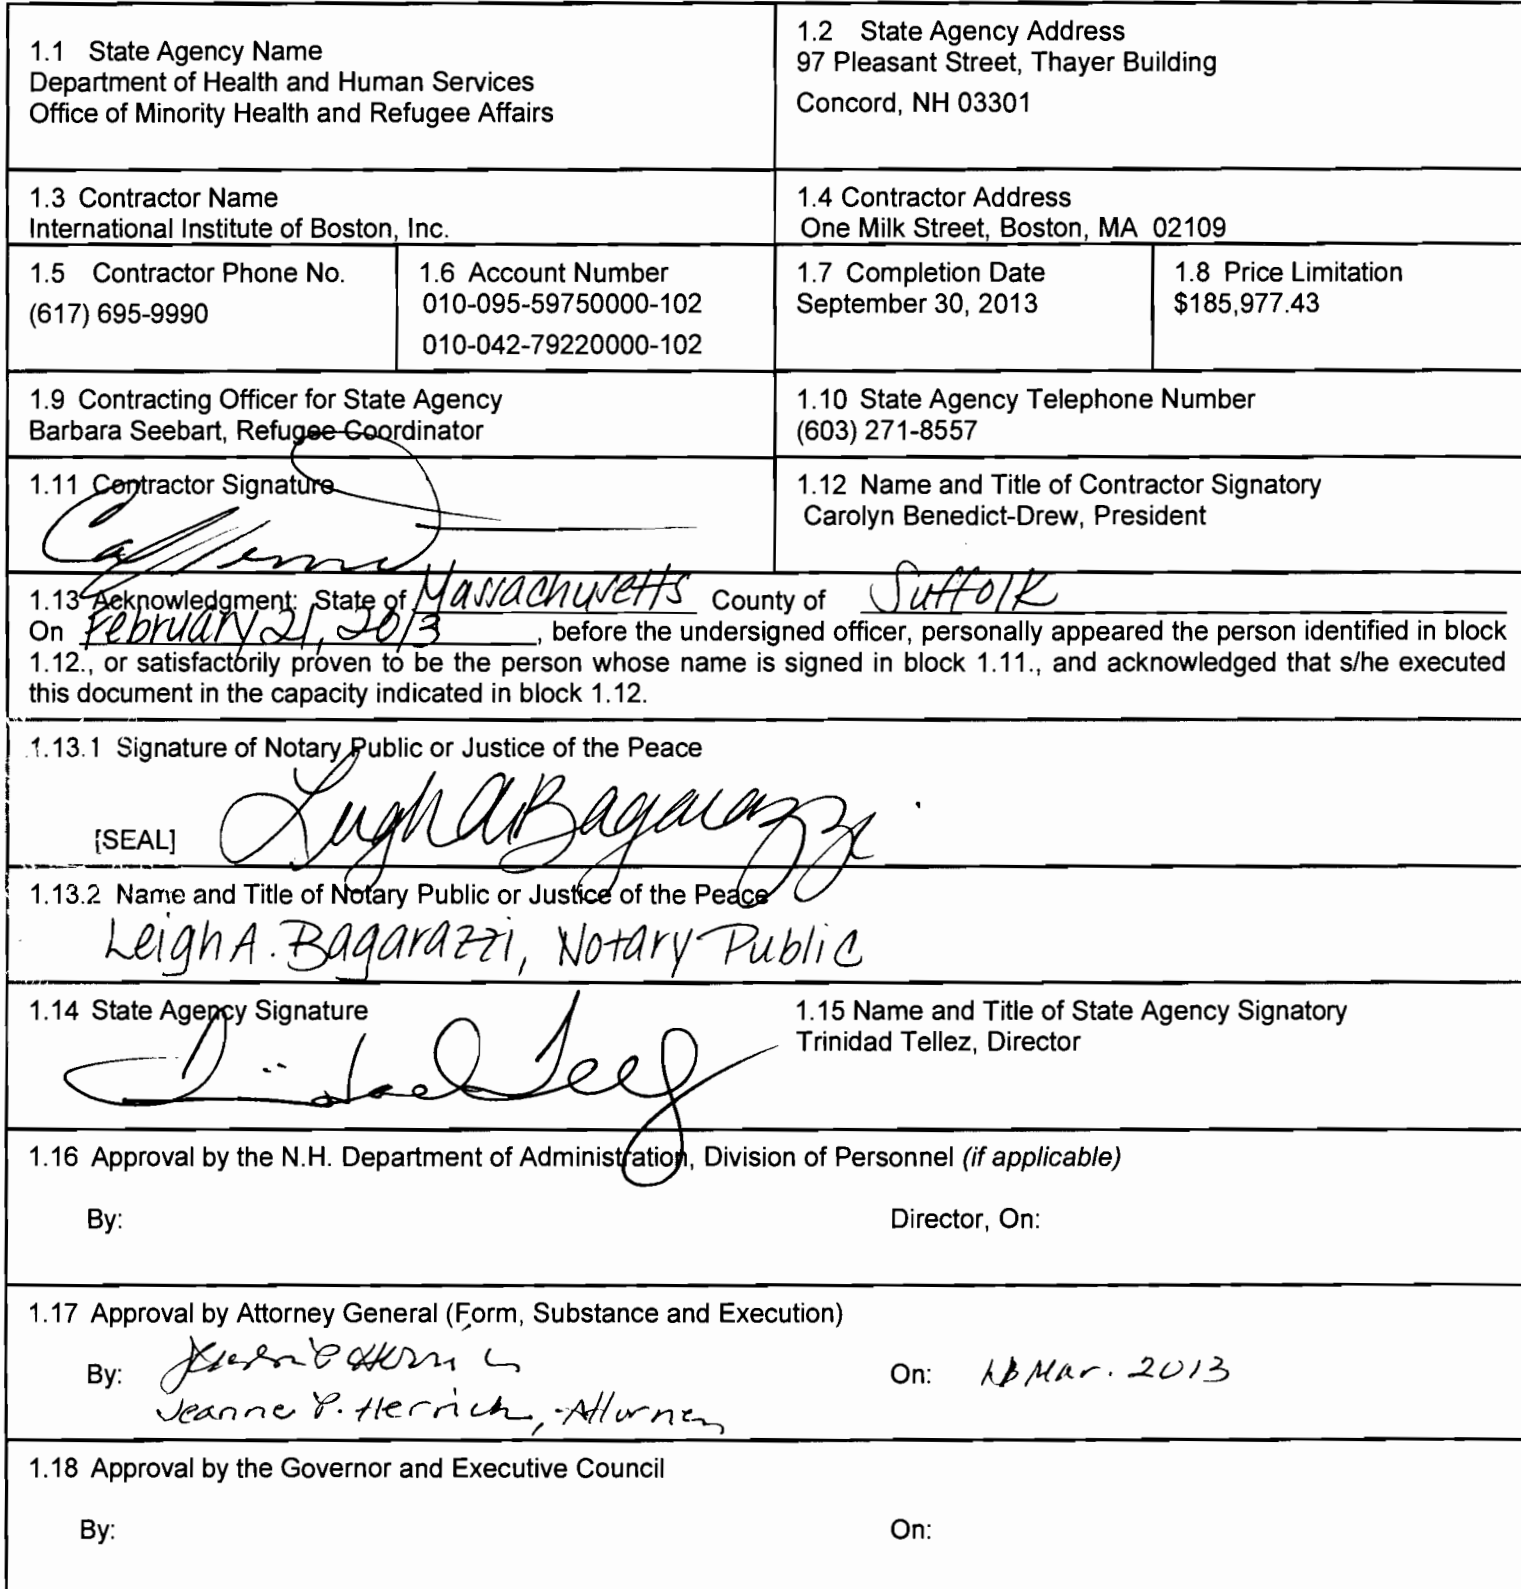 1.1 State Agency Name
Department of Health and Human Services
Office of Minority Health and Refugee Affairs
1.2 State Agency Address
97 Pleasant Street, Thayer Building
Concord, NH 03301
1.3 Contractor Name
International Institute of Boston, Inc.
1.4 Contractor Address
One Milk Street, Boston, MA 02109
1.5 Contractor Phone No.
(617) 695-9990
1.6 Account Number
010-095-59750000-102
010-042-79220000-102
1.7 Completion Date
September 30, 2013
1.8 Price Limitation
$185,977.43
1.9 Contracting Officer for State Agency
Barbara Seebart, Refugee Coordinator
1.10 State Agency Telephone Number
(603) 271-8557
1.11 Contractor Signature
1.12 Name and Title of Contractor Signatory
Carolyn Benedict-Drew, President
1.13 Acknowledgment: State of Massachusetts County of Suffolk
On February 21, 2013, before the undersigned officer, personally appeared the person identified in block
1.12., or satisfactorily proven to be the person whose name is signed in block 1.11., and acknowledged that s/he executed
this document in the capacity indicated in block 1.12.
1.13.1 Signature of Notary Public or Justice of the Peace
Leigh A Bagarazzi
[SEAL]
1.13.2 Name and Title of Notary Public or Justice of the Peace
Leigh A. Bagarazzi, Notary Public
1.14 State Agency Signature
1.15 Name and Title of State Agency Signatory
Trinidad Tellez, Director
1.16 Approval by the N.H. Department of Administration, Division of Personnel (if applicable)
By: Director, On:
1.17 Approval by Attorney General (Form, Substance and Execution)
By: On: Mar. 2013
Jeanne P. Herrick, Attorney
1.18 Approval by the Governor and Executive Council
By: On: